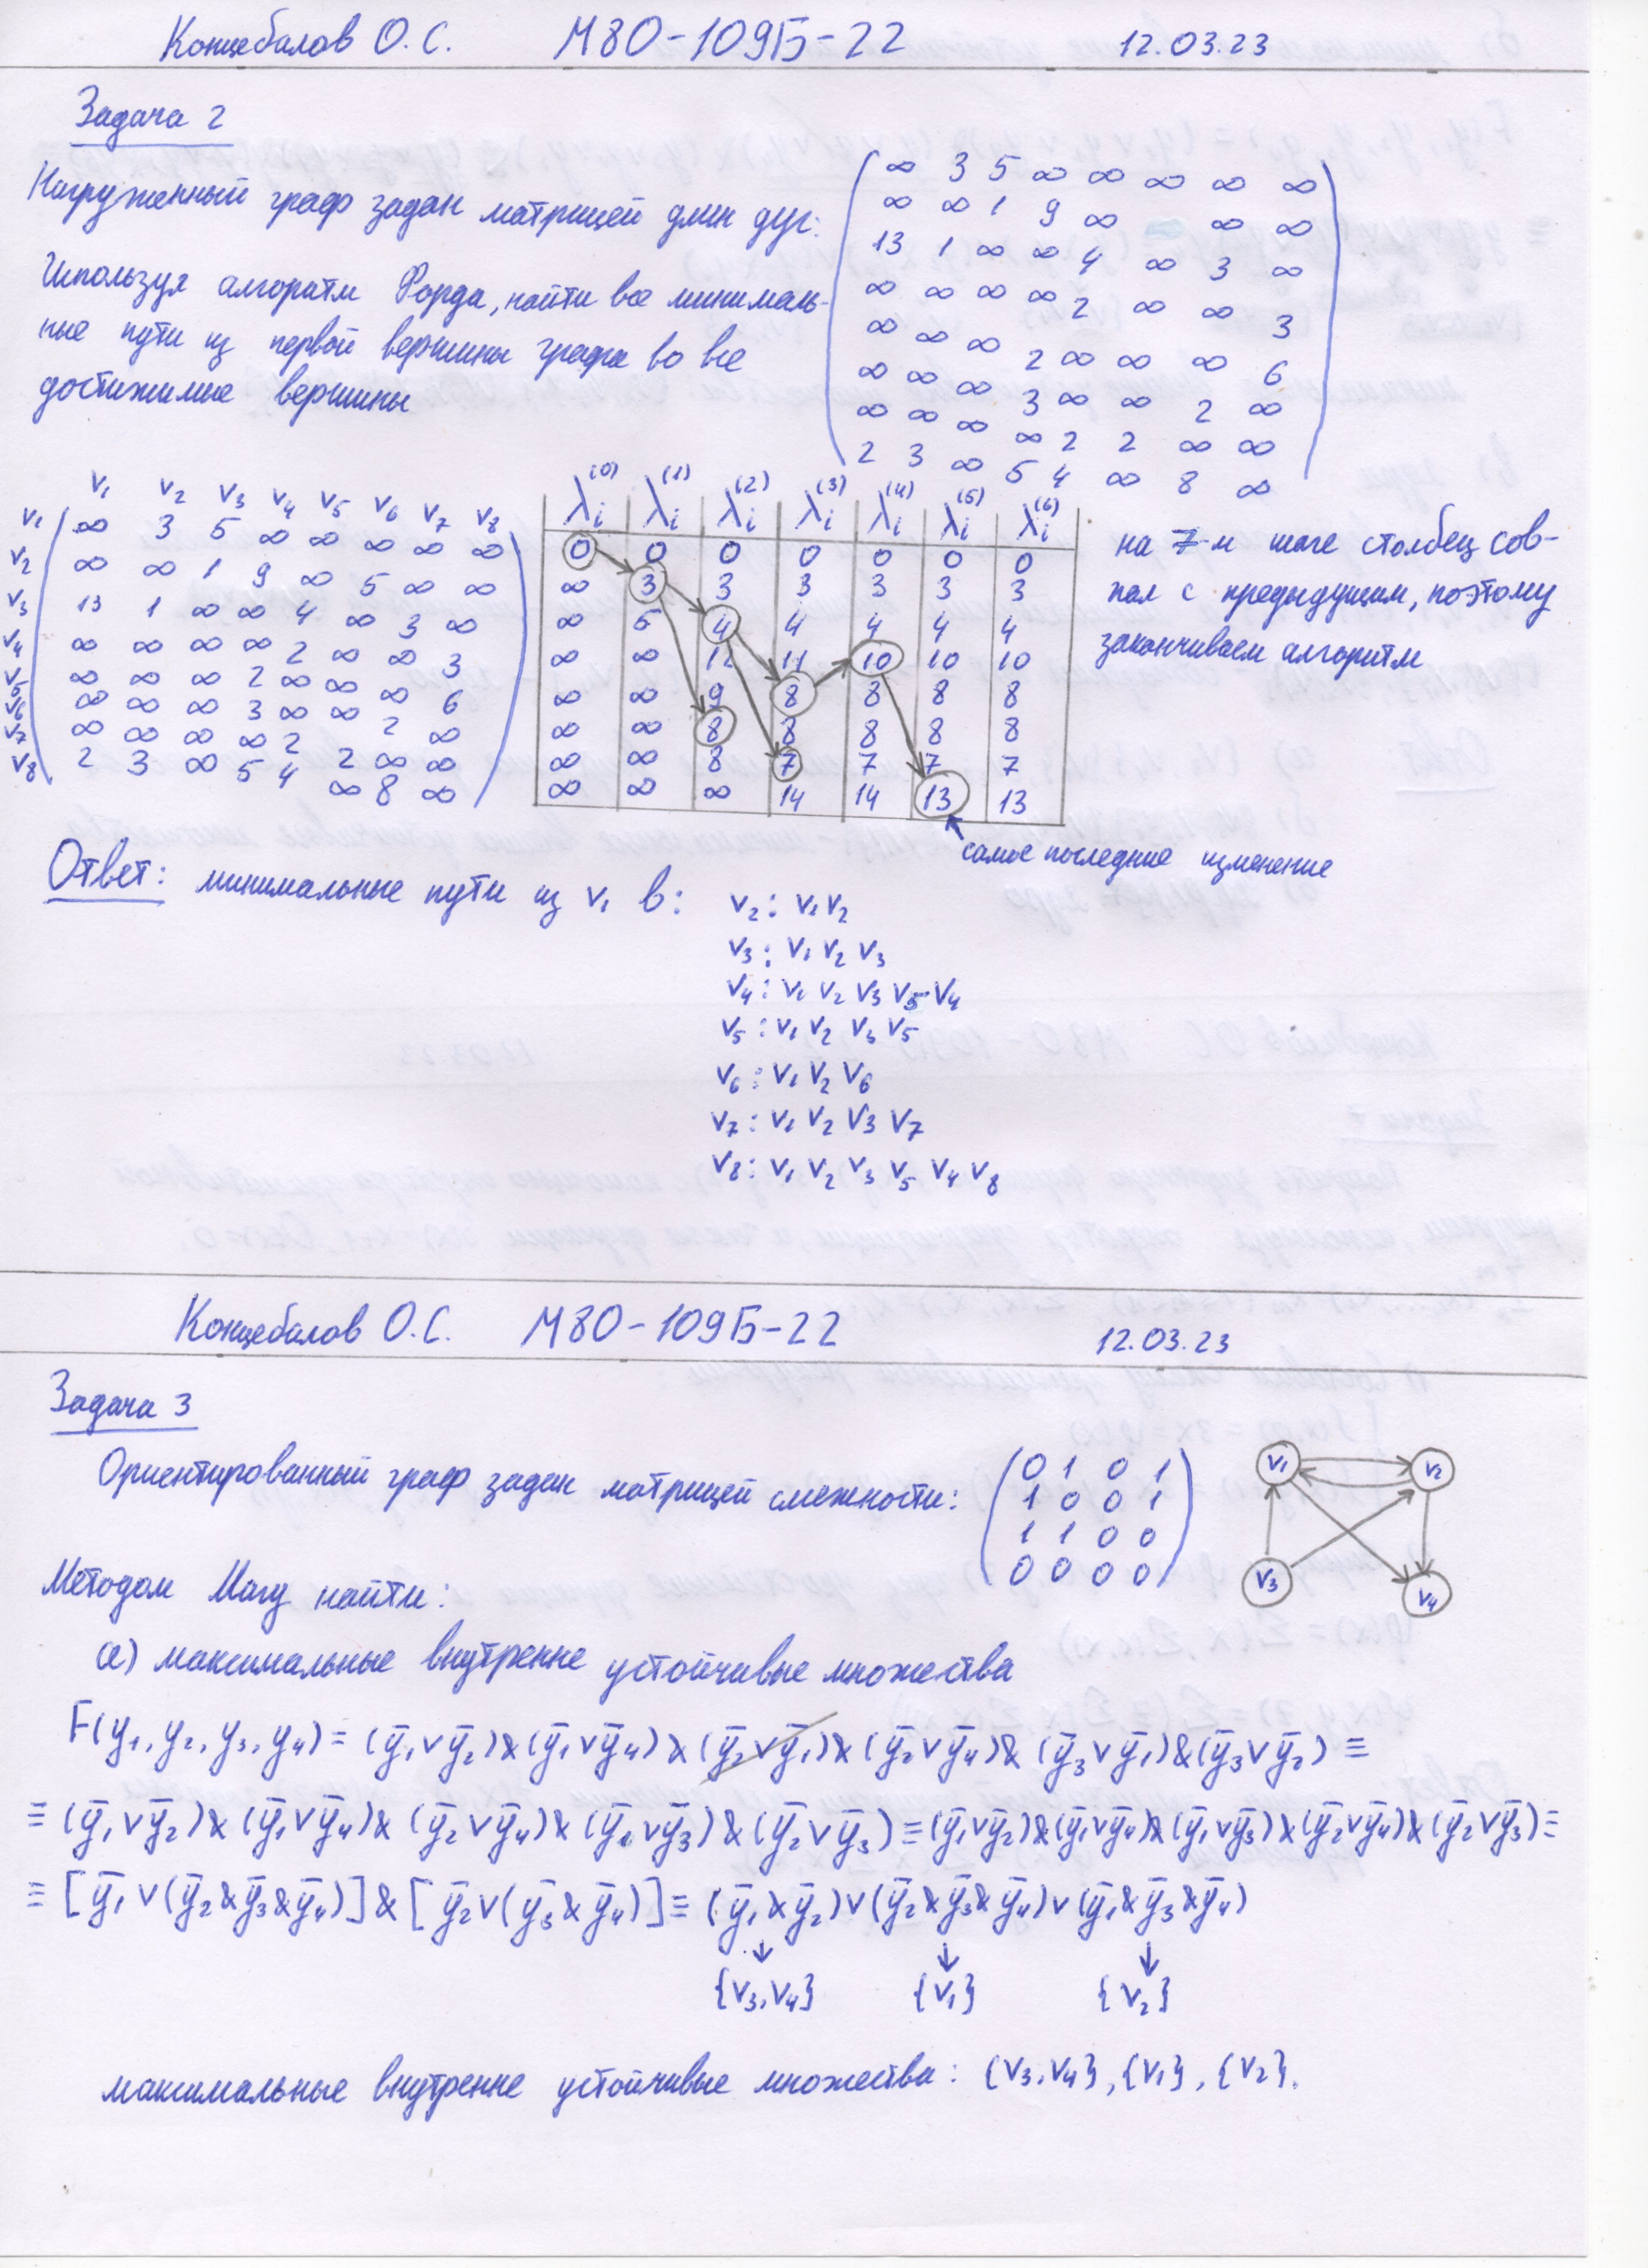 Концебалов О.С. М80-109Б-22 12.03.23
Задача 2
Нагруженный граф задан матрицей длин дуг:
Используя алгоритм Форда, найти все минималь-
ные пути из первой вершины графа во все
достижимые вершины
∞ 3 5 ∞ ∞ ∞ ∞ ∞
∞ ∞ 1 9 ∞ ∞ ∞
13 1 ∞ ∞ 4 ∞ 3 ∞
∞ ∞ ∞ ∞ 2 ∞ ∞ 3
∞ ∞ ∞ 2 ∞ ∞ ∞ 6
∞ ∞ ∞ 3 ∞ ∞ 2 ∞
∞ ∞ ∞ ∞ 2 2 ∞ ∞
2 3 ∞ 5 4 ∞ 8 ∞
V₁ V₂ V₃ V₄ V₅ V₆ V₇ V₈
V₁ ∞ 3 5 ∞ ∞ ∞ ∞ ∞
V₂ ∞ ∞ 1 9 ∞ 5 ∞ ∞
V₃ 13 1 ∞ ∞ 4 ∞ 3 ∞
V₄ ∞ ∞ ∞ ∞ 2 ∞ ∞ 3
V₅ ∞ ∞ ∞ 2 ∞ ∞ ∞ 6
V₆ ∞ ∞ ∞ 3 ∞ ∞ 2 ∞
V₇ ∞ ∞ ∞ ∞ 2 2 ∞ ∞
V₈ 2 3 ∞ 5 4 ∞ 8 ∞
λᵢ⁽⁰⁾ λᵢ⁽¹⁾ λᵢ⁽²⁾ λᵢ⁽³⁾ λᵢ⁽⁴⁾ λᵢ⁽⁵⁾ λᵢ⁽⁶⁾
0 0 0 0 0 0 0
∞ 3 3 3 3 3 3
∞ 5 4 4 4 4 4
∞ ∞ 12 11 10 10 10
∞ ∞ 9 8 8 8 8
∞ ∞ 8 8 8 8 8
∞ ∞ 8 7 7 7 7
∞ ∞ ∞ 14 14 13 13
на 7-м шаге столбец сов-
пал с предыдущим, поэтому
заканчиваем алгоритм
самое последние изменение
Ответ: минимальные пути из v₁ в: v₂: v₁ v₂
v₃: v₁ v₂ v₃
v₄: v₁ v₂ v₃ v₅ v₄
v₅: v₁ v₂ v₃ v₅
v₆: v₁ v₂ v₆
v₇: v₁ v₂ v₃ v₇
v₈: v₁ v₂ v₃ v₅ v₄ v₈
Концебалов О.С. М80-109Б-22 12.03.23
Задача 3
Ориентированный граф задан матрицей смежности:
0 1 0 1
1 0 0 1
1 1 0 0
0 0 0 0
V₁ V₂
V₃ V₄
Методом Магу найти:
а) максимальные внутренне устойчивые множества
F(y₁, y₂, y₃, y₄) = (ȳ₁ ∨ ȳ₂) & (ȳ₁ ∨ ȳ₄) & (ȳ₂ ∨ ȳ₁) & (ȳ₂ ∨ ȳ₄) & (ȳ₃ ∨ ȳ₁) & (ȳ₃ ∨ ȳ₂) ≡
≡ (ȳ₁ ∨ ȳ₂) & (ȳ₁ ∨ ȳ₄) & (ȳ₂ ∨ ȳ₄) & (ȳ₁ ∨ ȳ₃) & (ȳ₂ ∨ ȳ₃) ≡ (ȳ₁ ∨ ȳ₂) & (ȳ₁ ∨ ȳ₄) & (ȳ₁ ∨ ȳ₃) & (ȳ₂ ∨ ȳ₄) & (ȳ₂ ∨ ȳ₃) ≡
≡ [ȳ₁ ∨ (ȳ₂ & ȳ₃ & ȳ₄)] & [ȳ₂ ∨ (ȳ₃ & ȳ₄)] ≡ (ȳ₁ & ȳ₂) ∨ (ȳ₂ & ȳ₃ & ȳ₄) ∨ (ȳ₁ & ȳ₃ & ȳ₄)
↓ ↓ ↓
{v₃, v₄} {v₁} {v₂}
максимальные внутренне устойчивые множества: {v₃, v₄}, {v₁}, {v₂}.